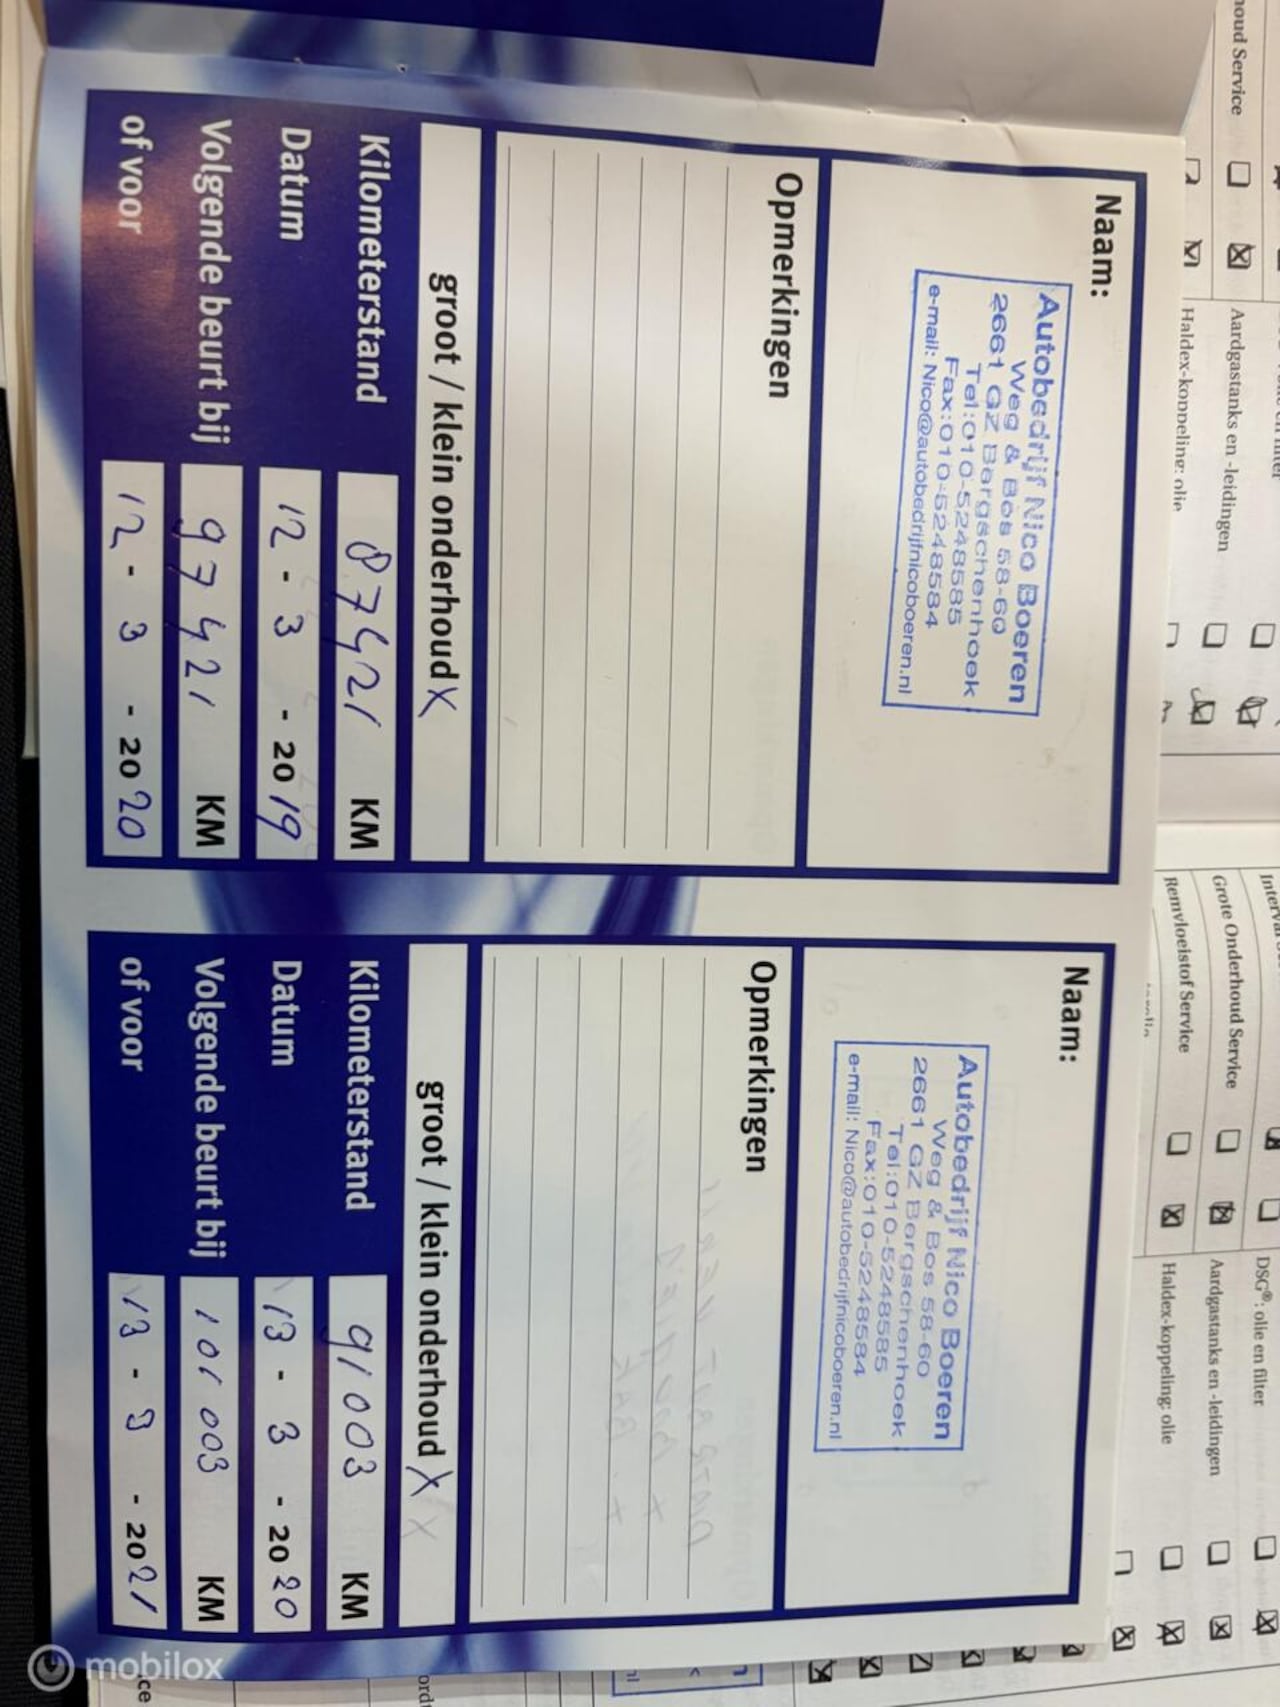 Naam:
Autobedrijf Nico Boeren
Weg & Bos 58-60
2661 GZ Bergschenhoek
Tel:010-5248585
Fax:010-5248584
e-mail: Nico@autobedrijfnicoboeren.nl
Opmerkingen
groot / klein onderhoud X
Kilometerstand 87421 KM
Datum 12 - 3 - 2019
Volgende beurt bij 97421 KM
of voor 12 - 3 - 2020
Naam:
Autobedrijf Nico Boeren
Weg & Bos 58-60
2661 GZ Bergschenhoek
Tel:010-5248585
Fax:010-5248584
e-mail: Nico@autobedrijfnicoboeren.nl
Opmerkingen
groot / klein onderhoud X
Kilometerstand 91003 KM
Datum 13 - 3 - 2020
Volgende beurt bij 101003 KM
of voor 13 - 3 - 2021
noud Service
Aardgastanks en -leidingen
Haldex-koppeling: olie
Grote Onderhoud Service
Remvloeistof Service
DSG®: olie en filter
Aardgastanks en -leidingen
Haldex-koppeling: olie
mobilox